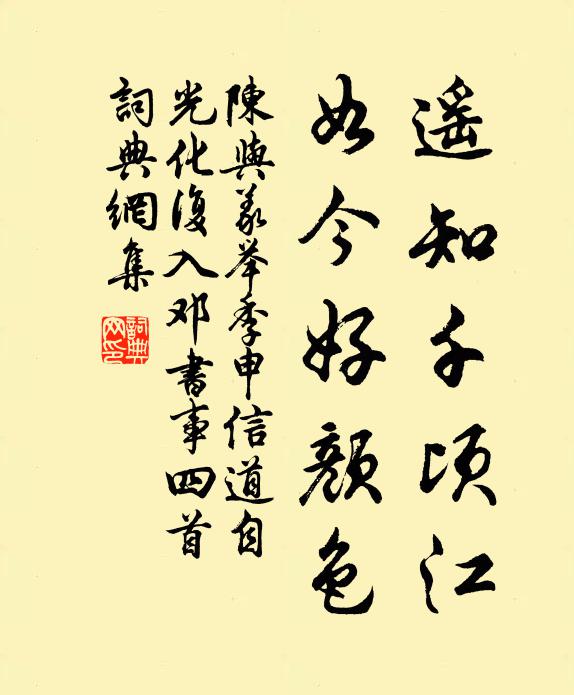 遥知千顷江
如今好颜色
陳與義举季申信道自
光化復入邓書事四首
詞典網集
詞典
网印